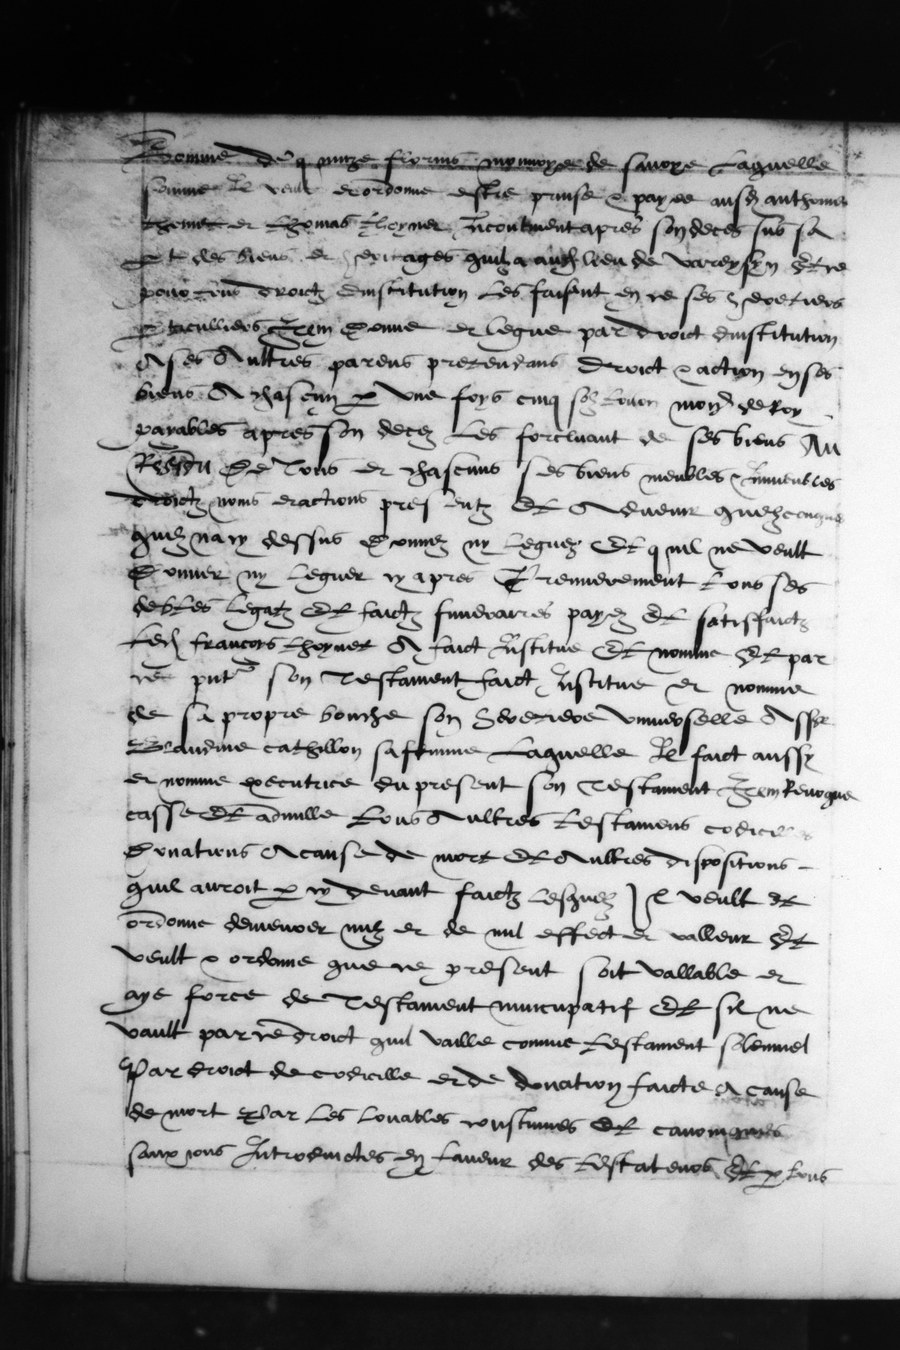 Somme de quinze florins monnoye de savoye Laquelle
somme Il veult et ordonne estre prinse & payee ausd anthoine
thomet et thomas thoynet Incontinent apres son deces sus sa
part des biens et heritages quil a aud lieu de vareysyn Et ce
pour tous droictz dinstitution Les faisant en ce ses heretiers
particulliers Item donne et legue par droict dinstitution
A ses Aultres parens pretendans droict & action en ses
biens A chascun p une foys cinq solz tourn monn de Roy
payables apres son decez Les forcluant de ses biens Au
Residu De Tous et chascuns ses biens meubles & Immeubles
droictz noms et actions presentz Et Advenir quelzconques
quilz na cy dessus Donnez ny Leguez Et quil ne veult
Donner ny Leguer cy apres Premierement tous ses
debtes Legatz Et faictz funeraires payez Et satisfaictz
Led francoys thoynet A faict Institue Et nomme Et par
ce pnt son Testament faict Institue et nomme
de sa propre bouche son heretiere universelle Asscr
Claudine cathillon sa femme Laquelle Il faict aussy
et nomme executrice du present son Testament Item Revoque
casse Et adnulle Tous Aultres testamens codicilles
Donations A cause de mort Et Aultres dispositions
quil auroit p cy devant faictz Lesquelz Il veult Et
ordonne demeurer nulz et de nul effect et valleur Et
veult & ordonne que ce present soit vallable et
aye force de Testament nuncupatif Et sil ne
vault par ce droict quil vaille comme testament solemnel
Par droict de codicille et de donation faicte A cause
de mort Par les Louables coustumes Et canonicques
sanxions Introduictes en faveur des testateurs Et p tous